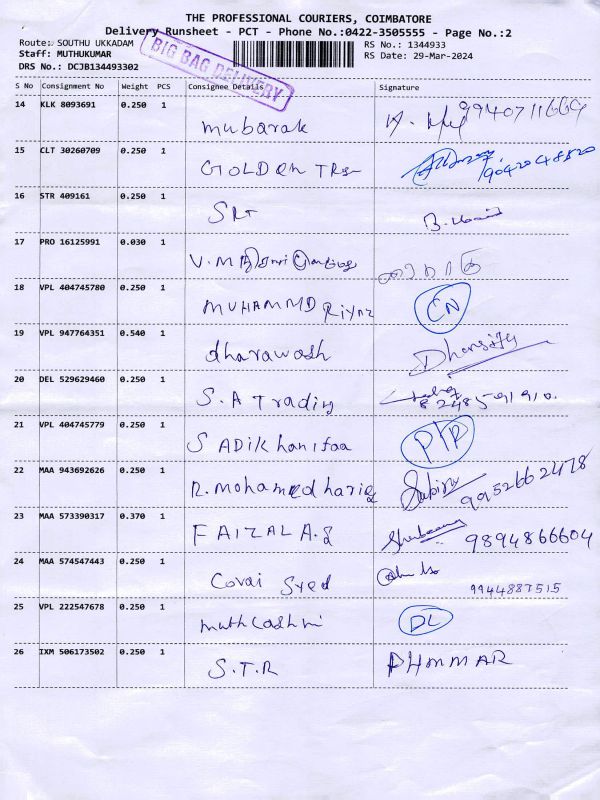 THE PROFESSIONAL COURIERS, COIMBATORE
Delivery Runsheet - PCT - Phone No.:0422-3505555 - Page No.:2
Route: SOUTHU UKKADAM RS No.: 1344933
Staff: MUTHUKUMAR RS Date: 29-Mar-2024
DRS No.: DCJB134493302
BIG BAG DELIVERY
S No Consignment No Weight PCS Consignee Details Signature
14 KLK 8093691 0.250 1 mubarak 9940711669
15 CLT 30260709 0.250 1 GOLDEN 9042048820
16 STR 409161 0.250 1 SRT
17 PRO 16125991 0.030 1 V.M
18 VPL 404745780 0.250 1 MUHAMMD Riynz CN
19 VPL 947764351 0.540 1 dharawash
20 DEL 529629460 0.250 1 S.A Trading 8248591910.
21 VPL 404745779 0.250 1 SADIKhanifaa
22 MAA 943692626 0.250 1 R.mohamed hariq 9952662478
23 MAA 573390317 0.370 1 FAIZAL A.R 9894866604
24 MAA 574547443 0.250 1 Covai Syed 9944887515
25 VPL 222547678 0.250 1 DL
26 IXM 506173502 0.250 1 S.T.R